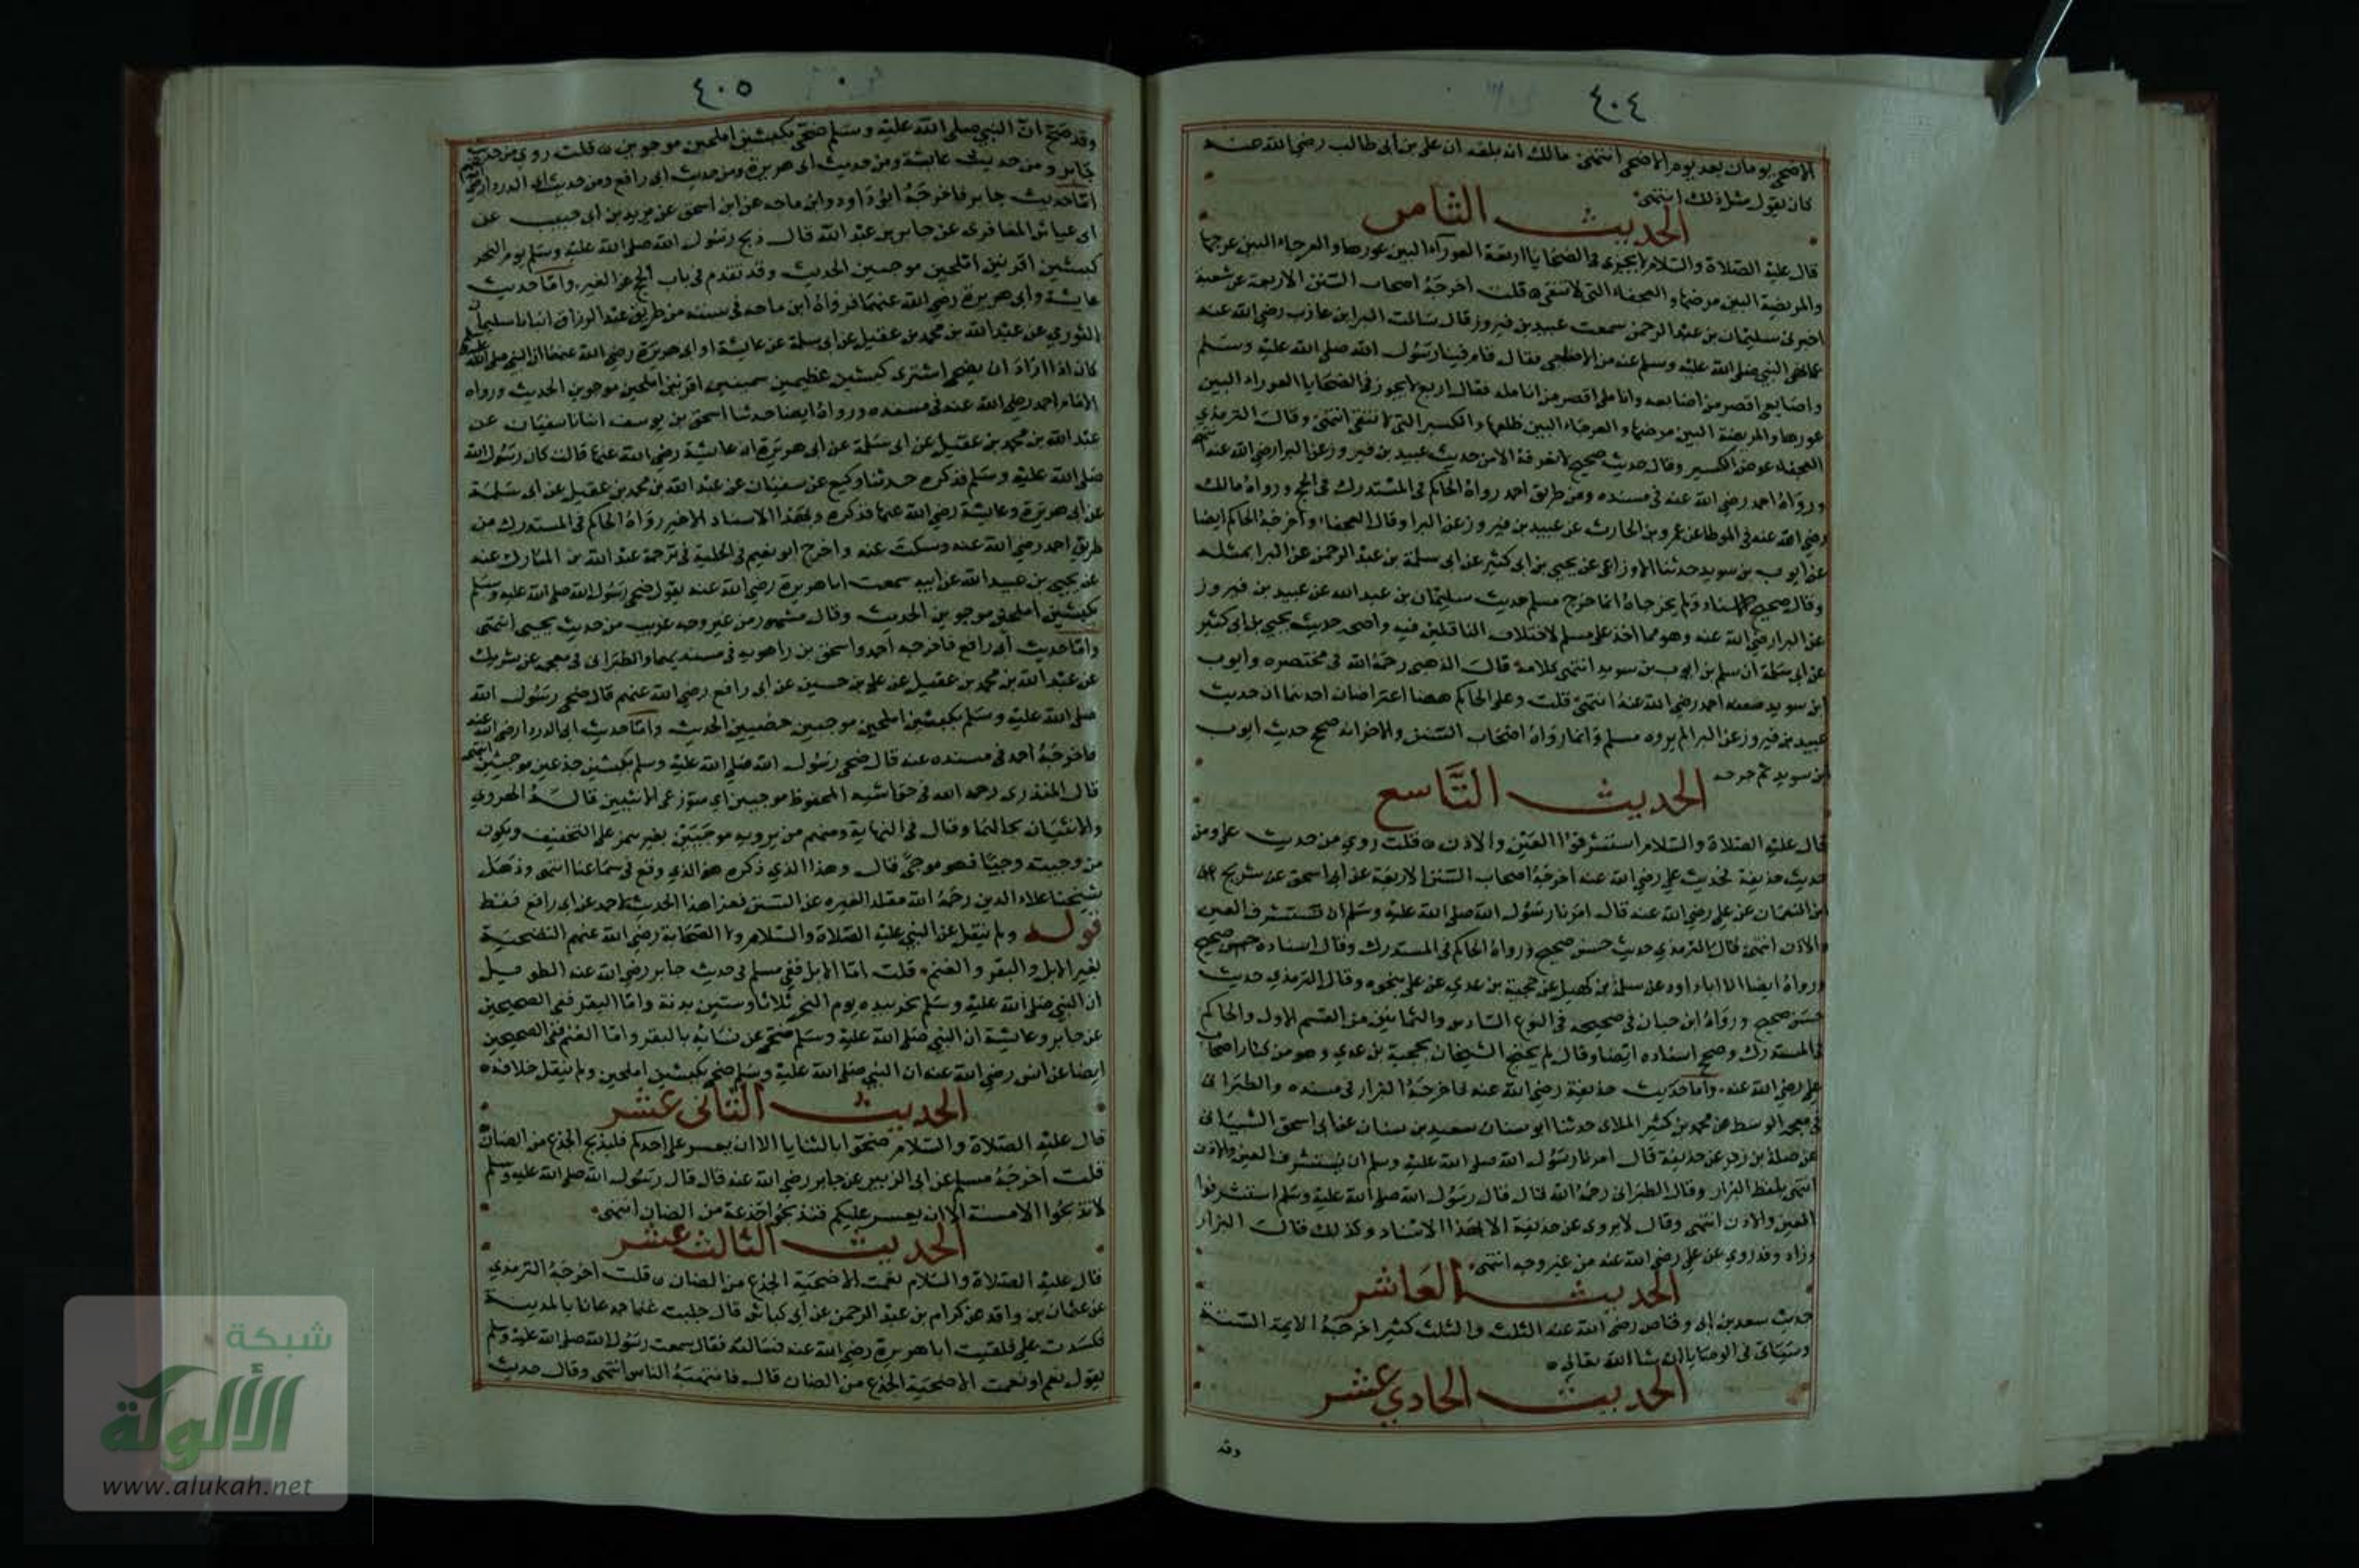 ٤٠٤
الاضحى يومان بعد يوم الاضحى انتهى مالك انه بلغه ان على بن أبى طالب رضى الله عنه
كان يقول مثل ذلك انتهى
الحديث الثامن
قال عليه الصلاة والسلام لا يجزى فى الضحايا اربعة العوراء البين عورها والعرجاء البين عرجها
والمريضة البين مرضها والعجفاء التى لا تنقى ه قلت أخرجه اصحاب السنن الاربعة عن شعبة
اخبرنى سليمان بن عبد الرحمن سمعت عبيد بن فيروز قال سالت البرا بن عازب رضى الله عنه
عما نهى النبى صلى الله عليه وسلم عنه من الاضحى فقال قام فينا رسول الله صلى الله عليه وسلم
واصابعى اقصر من اصابعه واناملى اقصر من انامله فقال اربع لا يجوز فى الضحايا العوراء البين
عورها والمريضة البين مرضها والعرجاء البين ظلعها والكسير التى لا تنقى انتهى وقال الترمذي
العجفاء عوض الكسير وقال حديث صحيح لا نعرفه الا من حديث عبيد بن فيروز عن البرا رضى الله عنه انتهى
ورواه احمد رضى الله عنه فى مسنده ومن طريق احمد رواه الحاكم فى المستدرك فى الحج ورواه مالك
رضى الله عنه فى الموطا عن عمرو بن الحارث عن عبيد بن فيروز عن البرا وقال العجفا وأخرجه الحاكم ايضا
عن ايوب بن سويد حدثنا الاوزاعى عن يحيى بن ابى كثير عن ابى سلمة بن عبد الرحمن عن البرا بمثله
وقال صحيح الاسناد ولم يخرجاه انما خرج مسلم حديث سليمان بن عبد الله عن عبيد بن فيروز
عن البرا رضى الله عنه وهو مما اخذ على مسلم لاختلاف الناقلين فيه واصحه حديث يحيى بن ابى كثير
عن ابى سلمة ان سلم بن ايوب بن سويد انتهى كلامه قال الذهبى رحمه الله فى مختصره وايوب
ابن سويد ضعفه احمد رضى الله عنه انتهى قلت وعلى الحاكم ههنا اعتراضان احدهما ان حديث
عبيد بن فيروز عن البرا لم يروه مسلم وانما رواه اصحاب السنن والاخر انه صحح حديث ايوب
ابن سويد ثم جرحه
الحديث التاسع
قال عليه الصلاة والسلام استشرفوا العين والاذن ه قلت روي من حديث على ومن
حديث حذيفة فحديث علي رضى الله عنه اخرجه اصحاب السنن الاربعة عن أبى اسحق عن شريح
بن النعمان عن على رضى الله عنه قال امرنا رسول الله صلى الله عليه وسلم ان نستشرف العين
والاذن انتهى قال الترمذي حديث حسن صحيح ورواه الحاكم فى المستدرك وقال اسناده صحيح
ورواه ايضا الا ابا داود عن سلمة بن كهيل عن حجية بن عدي عن على بنحوه وقال الترمذي حديث
حسن صحيح ورواه ابن حبان فى صحيحه فى النوع السادس والثمانين من القسم الاول والحاكم
فى المستدرك وصحح اسناده ايضا وقال لم يحتج الشيخان بحجية بن عدي وهو من كبار اصحاب
على رضى الله عنه وأما حديث حذيفة رضى الله عنه فاخرجه البزار فى مسنده والطبرانى
فى معجمه الوسط عن محمد بن كثير الملاى حدثنا ابو سنان سعيد بن سنان عن أبى اسحق الشيبانى
عن صلة بن زفر عن حذيفة قال امرنا رسول الله صلى الله عليه وسلم ان نستشرف العين والاذن
انتهى بلفظ البزار وقال الطبرانى رحمه الله قال قال رسول الله صلى الله عليه وسلم استشرفوا
العين والاذن انتهى وقال لا يروى عن حذيفة الا بهذا الاسناد وكذلك قال البزار
وزاد وقد روي عن على رضى الله عنه من غير وجه انتهى
الحديث العاشر
حديث سعد بن ابى وقاص رضى الله عنه الثلث والثلث كثير اخرجه الايمة الستة
وسياتى فى الوصايا ان شا الله تعالى ه
الحديث الحادي عشر
وقد
٤٠٥
وقد صح ان النبي صلى الله عليه وسلم ضحى بكبشين املحين موجوين ه قلت روي من حديث
جابر ومن حديث عايشة ومن حديث ابى هريرة ومن حديث ابى رافع ومن حديث ابى الدردا رضى الله عنهم
اما حديث جابر فاخرجه ابو داود وابن ماجه عن ابن اسحق عن يزيد بن ابى حبيب عن
ابى عياش المعافرى عن جابر بن عبد الله قال ذبح رسول الله صلى الله عليه وسلم يوم النحر
كبشين اقرنين املحين موجيين الحديث وقد تقدم فى باب الحج عن الغير واما حديث
عايشة وأبى هريرة رضى الله عنهما فرواه ابن ماجه فى سننه من طريق عبد الرزاق انبانا سفيان
الثوري عن عبد الله بن محمد بن عقيل عن ابى سلمة عن عايشة او ابى هريرة رضى الله عنهما ان النبي صلى الله عليه وسلم
كان اذا اراد ان يضحى اشترى كبشين عظيمين سمينين اقرنين املحين موجوين الحديث ورواه
الامام احمد رضى الله عنه فى مسنده ورواه ايضا حدثنا اسحق بن يوسف انبانا سفيان عن
عبد الله بن محمد بن عقيل عن ابى سلمة عن أبى هريرة ان عايشة رضى الله عنها قالت كان رسول الله
صلى الله عليه وسلم فذكره حدثنا وكيع عن سفيان عن عبد الله بن محمد بن عقيل عن ابى سلمة
عن أبى هريرة وعايشة رضى الله عنها فذكره وبهذا الاسناد الاخير رواه الحاكم فى المستدرك من
طريق احمد رضى الله عنه وسكت عنه واخرج ابو نعيم فى الحلية فى ترجمة عبد الله بن المبارك عنه
عن يحيى بن عبيد الله عن ابيه سمعت ابا هريرة رضى الله عنه يقول ضحى رسول الله صلى الله عليه وسلم
بكبشين املحين موجوين الحديث وقال مشهور من غير وجه غريب من حديث يحيى انتهى
واما حديث أبى رافع فاخرجه احمد واسحق بن راهويه فى مسنديهما والطبرانى فى معجمه عن شريك
عن عبد الله بن محمد بن عقيل عن على بن حسين عن ابى رافع رضى الله عنهم قال ضحى رسول الله
صلى الله عليه وسلم بكبشين املحين موجيين خصيين الحديث واما حديث ابى الدردا رضى الله عنه
فاخرجه أحمد فى مسنده عنه قال ضحى رسول الله صلى الله عليه وسلم بكبشين جذعين موجيين انتهى
قال المنذرى رحمه الله فى حواشيه المحفوظ موجيين اي منزوعى الانثيين قاله الهروي
والانثيان بحالهما وقال فى النهاية ومنهم من يرويه موجيين بغير همز على التخفيف ويكون
من وجيته وجيا فهو موجى قال وهذا الذي ذكره هو الذي وقع فى سماعنا انتهى وذهل
شيخنا علاء الدين رحمه الله مقلدا لغيره عن السنن فعزا هذا الحديث لاحمد عن ابى رافع فقط
قوله ولم ينقل عن النبي عليه الصلاة والسلام ولا الصحابة رضى الله عنهم التضحية
بغير الابل والبقر والغنم قلت اما الابل ففى مسلم فى حديث جابر رضى الله عنه الطويل
ان النبي صلى الله عليه وسلم نحر بيده يوم النحر ثلاثا وستين بدنة واما البقر ففى الصحيحين
عن جابر وعايشة ان النبي صلى الله عليه وسلم ضحى عن نسائه بالبقر واما الغنم ففى الصحيحين
ايضا عن انس رضى الله عنه ان النبي صلى الله عليه وسلم ضحى بكبشين املحين ولم ينقل خلافه ه
الحديث الثانى عشر
قال عليه الصلاة والسلام ضحوا بالثنايا الا ان يعسر على احدكم فليذبح الجذع من الضان
قلت أخرجه مسلم عن ابى الزبير عن جابر رضى الله عنه قال قال رسول الله صلى الله عليه وسلم
لا تذبحوا الا مسنة الا ان يعسر عليكم فتذبحوا جذعة من الضان انتهى
الحديث الثالث عشر
قال عليه الصلاة والسلام نعمت الاضحية الجذع من الضان ه قلت أخرجه الترمذي
عن عثمان بن واقد عن كرام بن عبد الرحمن عن أبى كباش قال جلبت غنما جدعانا بالمدينة
فكسدت علي فلقيت ابا هريرة رضى الله عنه فسالته فقال سمعت رسول الله صلى الله عليه وسلم
يقول نعم او نعمت الاضحية الجذع من الضان قال فانتهبه الناس انتهى وقال حديث
شبكة
الألوكة
www.alukah.net